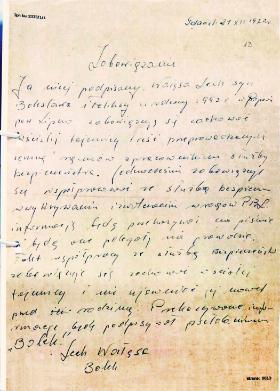 Gdańsk 21 XII 1970 r.
Zobowiązanie
Ja niżej podpisany Wałęsa Lech syn
Bolesława i Feliksy urodzony 1943 r w Popowo
pow Lipno zobowiązuję się zachować
w ścisłej tajemnicy treść przeprowadzonych
ze mną rozmów z pracownikami służby
bezpieczeństwa. Jednocześnie zobowiązuję
się współpracować ze służbą bezpieczeń
w wykrywaniu i zwalczaniu wrogów PRL
informacje będę przekazywał na piśmie
i będą one polegały na prawdzie.
Fakt współpracy ze służbą bezpieczeńs
zobowiązuję się zachować w ścisłej
tajemnicy i nie ujawniać jej nawet
przed rodziną. Przekazywane infor-
macje będę podpisywał pseudonimem
"Bolek".
Lech Wałęsa
Bolek